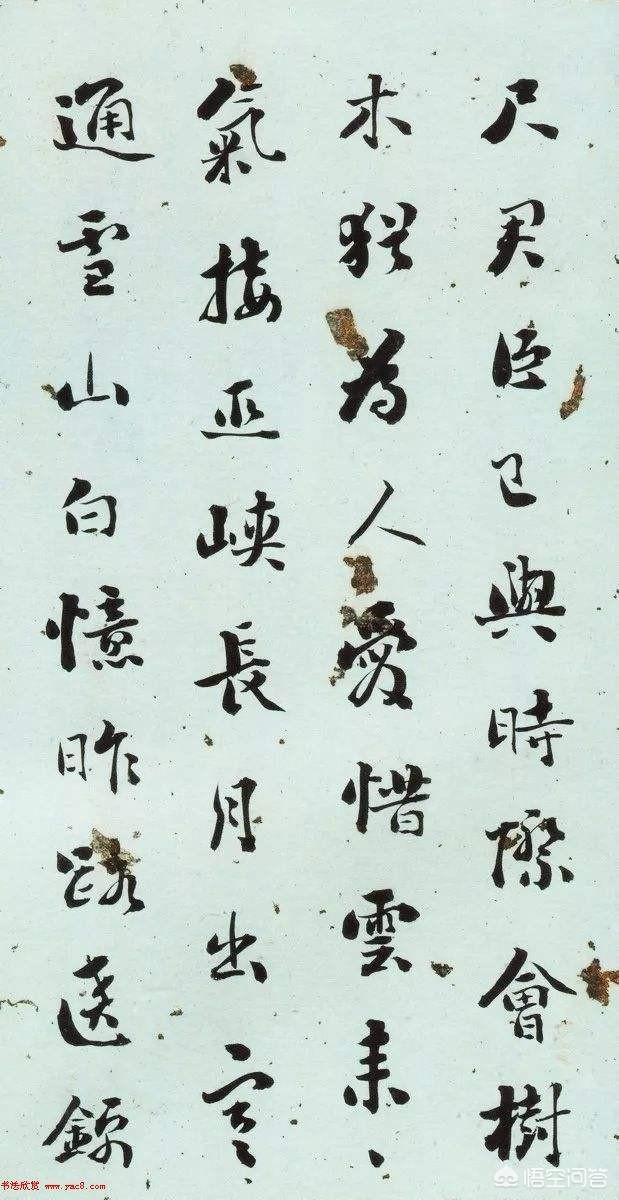 尺君臣已與時際會樹
木猶為人愛惜雲来
氣接巫峽長月出寒
通雪山白憶昨路遶錦
书法欣赏 www.yac8.com
悟空问答